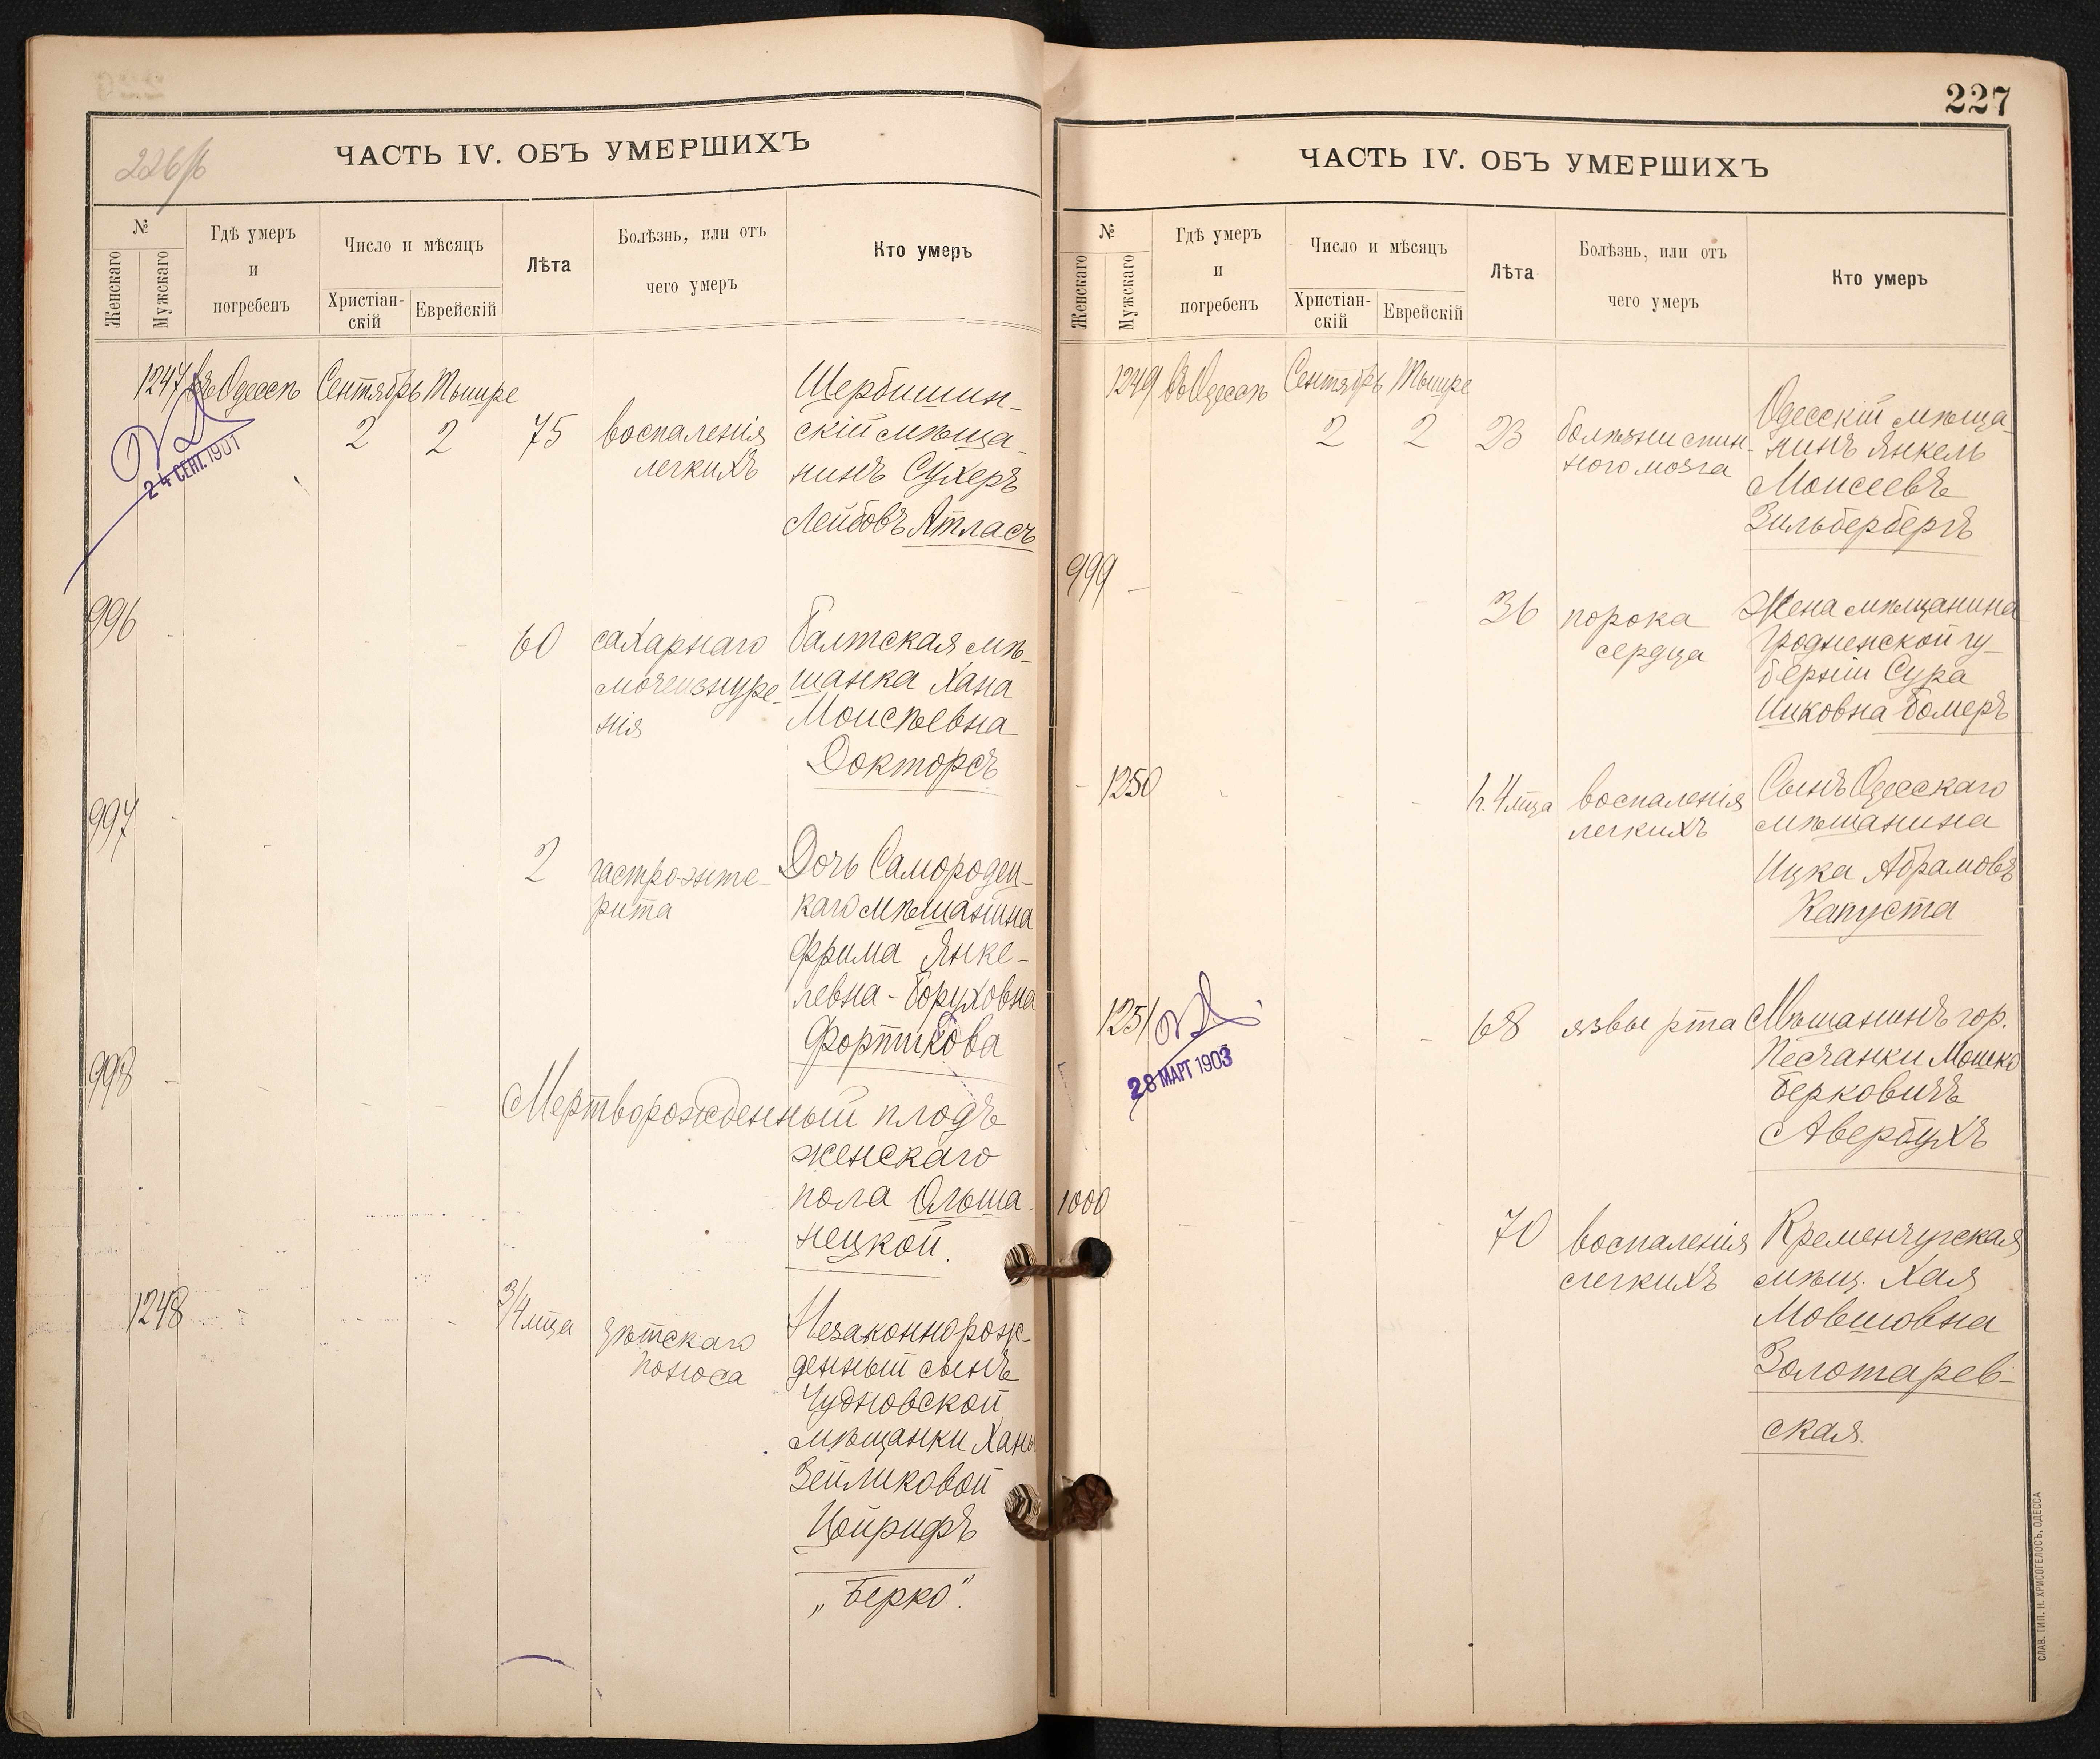 226/б
ЧАСТЬ IV. ОБЪ УМЕРШИХЪ
№
Женскаго
Мужскаго
Гдѣ умеръ
и
погребенъ
Число и мѣсяцъ
Христіан-
скій
Еврейскій
Лѣта
Болѣзнь, или отъ
чего умеръ
Кто умеръ
1247 въ Одессѣ Сентябрь Тышре
2 2 75 воспаленія
легкихъ
Щербишин-
скій мѣща-
нинъ Сухеръ
Лейбовъ Атласъ
24 СЕНТ. 1901
996 - - 60 сахарнаго
мочеизнуре-
нія
Балтская мѣ-
щанка Хана
Моисѣевна
Докторъ
997 2 гастро-энте-
рита
Дочь Самородец-
каго мѣщанина
Фрима Янке-
левна-Боруховна
Фортикова
998 - Мертворожденный плодъ
женскаго
пола Ольша-
нецкой.
1248 3/4 мца дѣтскаго
поноса
Незаконнорож-
денный сынъ
Чудновской
мѣщанки Ханы
Зейликовой
Цойрифъ
„Берко“.
227
ЧАСТЬ IV. ОБЪ УМЕРШИХЪ
№
Женскаго
Мужскаго
Гдѣ умеръ
и
погребенъ
Число и мѣсяцъ
Христіан-
скій
Еврейскій
Лѣта
Болѣзнь, или отъ
чего умеръ
Кто умеръ
1249 въ Одессѣ Сентябрь Тышре
2 2 23 болѣзни спин-
ного мозга
Одесскій мѣща-
нинъ Янкель
Моисеевъ
Зильбербергъ
999 - - - - 36 порока
сердца
Жена мѣщанина
Гродненской гу-
берніи Сура
Ицковна Бомеръ
1250 - - 4 мца воспаленія
легкихъ
Сынъ Одесскаго
мѣщанина
Ицка Абрамовъ
Капуста
1251 - - 68 язвы рта
Мѣщанинъ гор.
Песчанки Мошко
Берковичъ
Авербухъ
28 МАРТ 1903
1000 - - - 70 воспаленія
легкихъ
Кременчугская
мѣщ. Хая
Мовшовна
Золотарев-
ская.
СЛАВ. ТИП. Н. ХРИСОГЕЛОСЪ, ОДЕССА